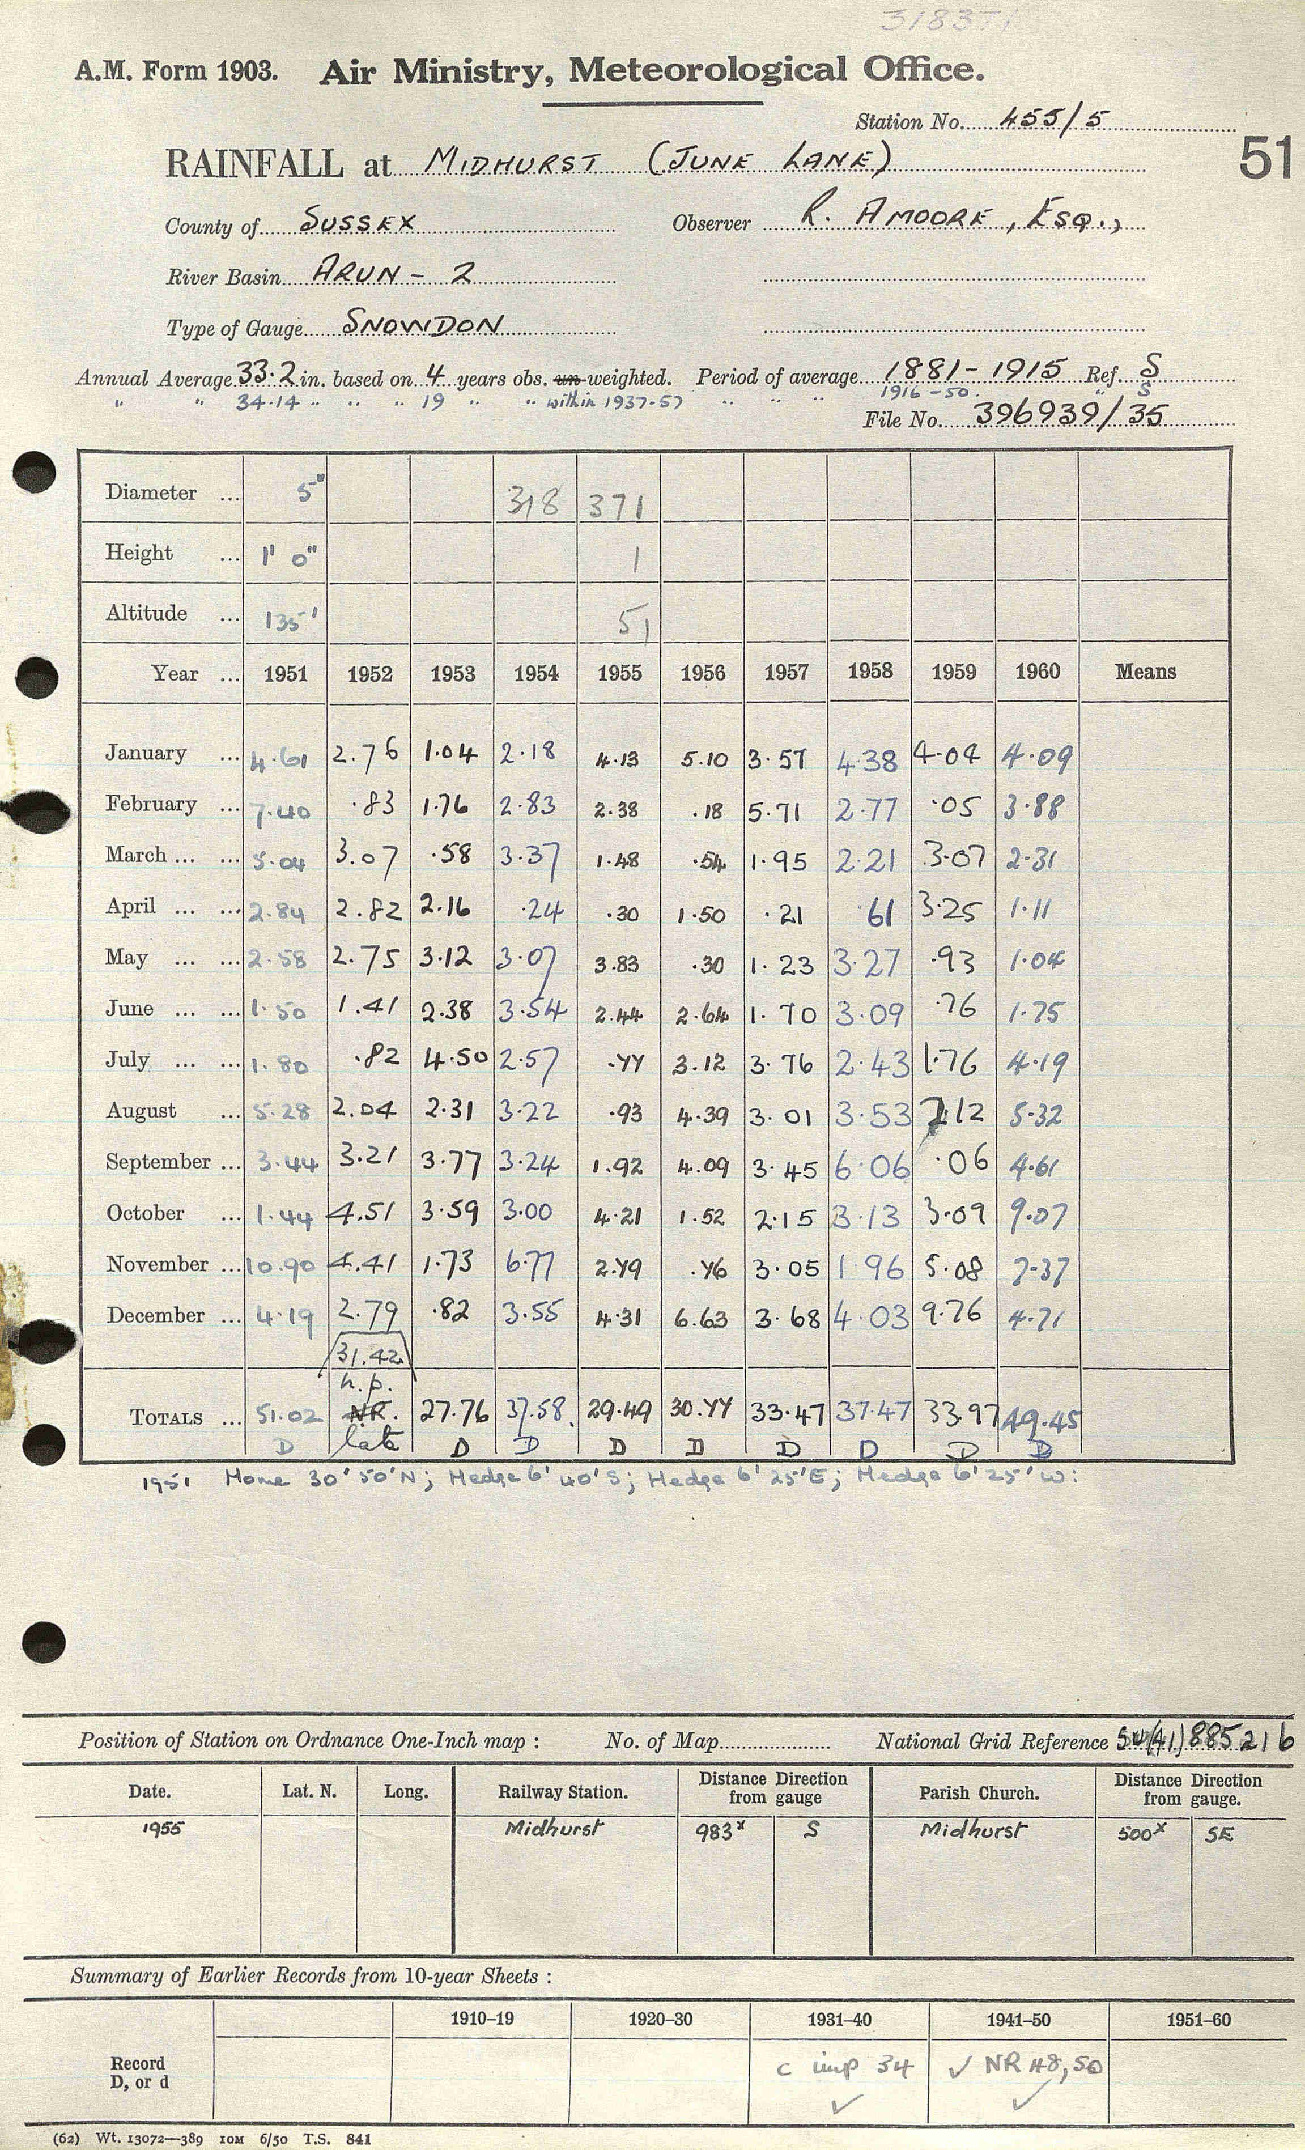 318371
A.M. Form 1903. Air Ministry, Meteorological Office.
Station No. 455/5
51
RAINFALL at MIDHURST (JUNE LANE)
County of SUSSEX Observer R. AMOORE, ESQ.,
River Basin ARUN - 2
Type of Gauge SNOWDON
Annual Average 33.2 in. based on 4 years obs. un-weighted. Period of average 1881-1915 Ref. S
" " 34.14 " " " 19 " " within 1937-57 " " " 1916-50. " S
File No. 396939/35
Diameter ... 5" 318 371
Height ... 1' 0" 1
Altitude ... 135' 51
Year ... 1951 1952 1953 1954 1955 1956 1957 1958 1959 1960 Means
January ... 4.61 2.76 1.04 2.18 4.13 5.10 3.57 4.38 4.04 4.09
February ... 7.40 .83 1.76 2.83 2.38 .18 5.71 2.77 .05 3.88
March ... ... 5.04 3.07 .58 3.37 1.48 .54 1.95 2.21 3.07 2.31
April ... ... 2.84 2.82 2.16 .24 .30 1.50 .21 61 3.25 1.11
May ... ... 2.58 2.75 3.12 3.07 3.83 .30 1.23 3.27 .93 1.04
June ... ... 1.50 1.41 2.38 3.54 2.44 2.64 1.70 3.09 .76 1.75
July ... ... 1.80 .82 4.50 2.57 .77 3.12 3.76 2.43 1.76 4.19
August ... 5.28 2.04 2.31 3.22 .93 4.39 3.01 3.53 2.12 5.32
September ... 3.44 3.21 3.77 3.24 1.92 4.09 3.45 6.06 .06 4.61
October ... 1.44 4.51 3.59 3.00 4.21 1.52 2.15 3.13 3.09 9.07
November ... 10.90 4.41 1.73 6.77 2.79 .76 3.05 1.96 5.08 7.37
December ... 4.19 2.79 .82 3.55 4.31 6.63 3.68 4.03 9.76 4.71
31.42
n.p.
TOTALS ... 51.02 NR. 27.76 37.58 29.49 30.77 33.47 37.47 33.97 49.45
D late D D D D D D D D
1951 Home 30'50'N; Hedge 6' 40'S; Hedge 6' 25'E; Hedge 6' 25'W:
Position of Station on Ordnance One-Inch map : No. of Map National Grid Reference SU(41)885216
Date. Lat. N. Long. Railway Station. Distance Direction from gauge Parish Church. Distance Direction from gauge.
1955 Midhurst 983x S Midhurst 500x SE
Summary of Earlier Records from 10-year Sheets :
1910–19 1920–30 1931–40 1941–50 1951–60
Record
D, or d c imp 34 ✓ NR 48, 50
✓ ✓
(62) Wt. 13072—389 10M 6/50 T.S. 841